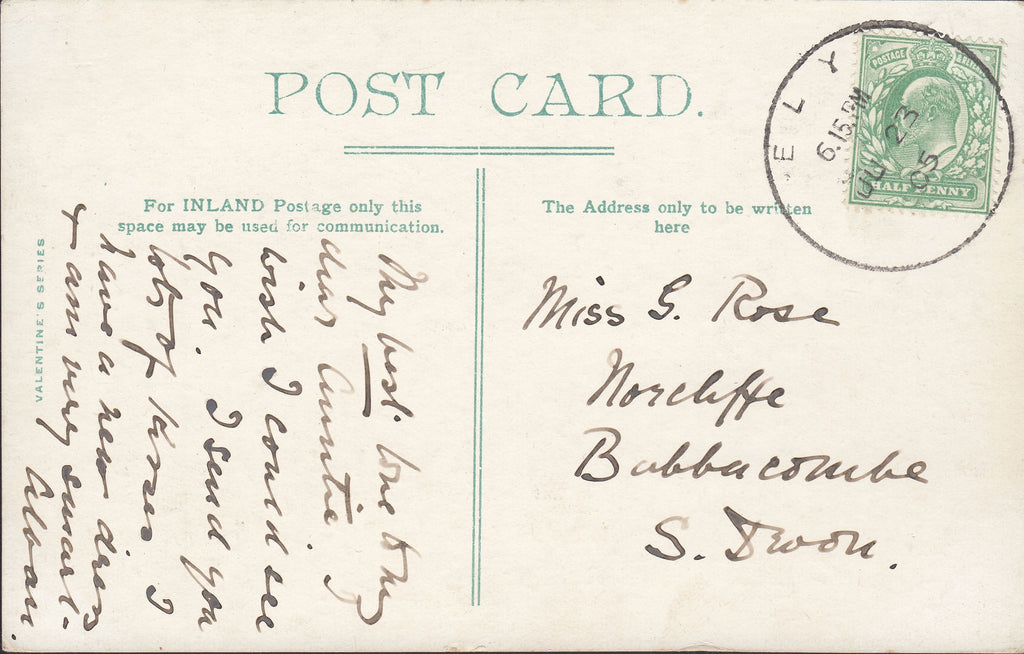 POST CARD.
For INLAND Postage only this
space may be used for communication.
The Address only to be written
here
VALENTINE'S SERIES
ELY
6.15 PM
JU 23
05
POSTAGE
HALFPENNY
My best love to my
dear Auntie. I
wish I could see
you. I send you
lots of kisses I
have a new dress
+ am very smart -
Alban.
Miss G. Rose
Norcliffe
Babbacombe
S. Devon.